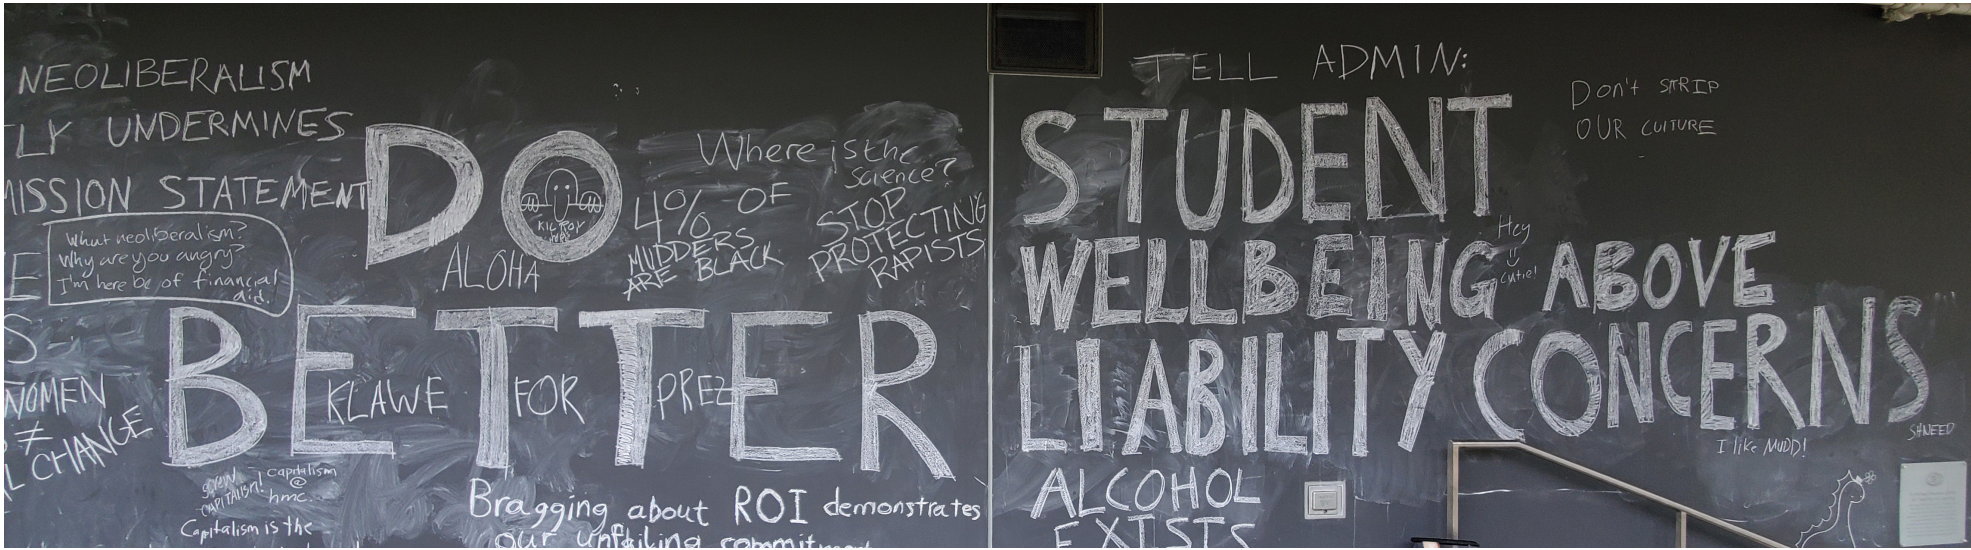 NEOLIBERALISM
LY UNDERMINES
MISSION STATEMENT
What neoliberalism?
Why are you angry?
I'm here bc of financial
aid.
E
S
WOMEN
≠
L CHANGE
DO
KILROY
WAS
ALOHA
4% OF
MUDDERS
ARE BLACK
Where is the
science?
STOP
PROTECTING
RAPISTS
BETTER
KLAWE FOR PREZ
screw
CAPITALISM!
capitalism
@
hmc.
Capitalism is the
Bragging about ROI demonstrates
our unfailing commitment
TELL ADMIN:
STUDENT
WELLBEING ABOVE
LIABILITY CONCERNS
Don't STRIP
OUR CULTURE
Hey
cutie!
ALCOHOL
EXISTS
I like MUDD!
SHNEED